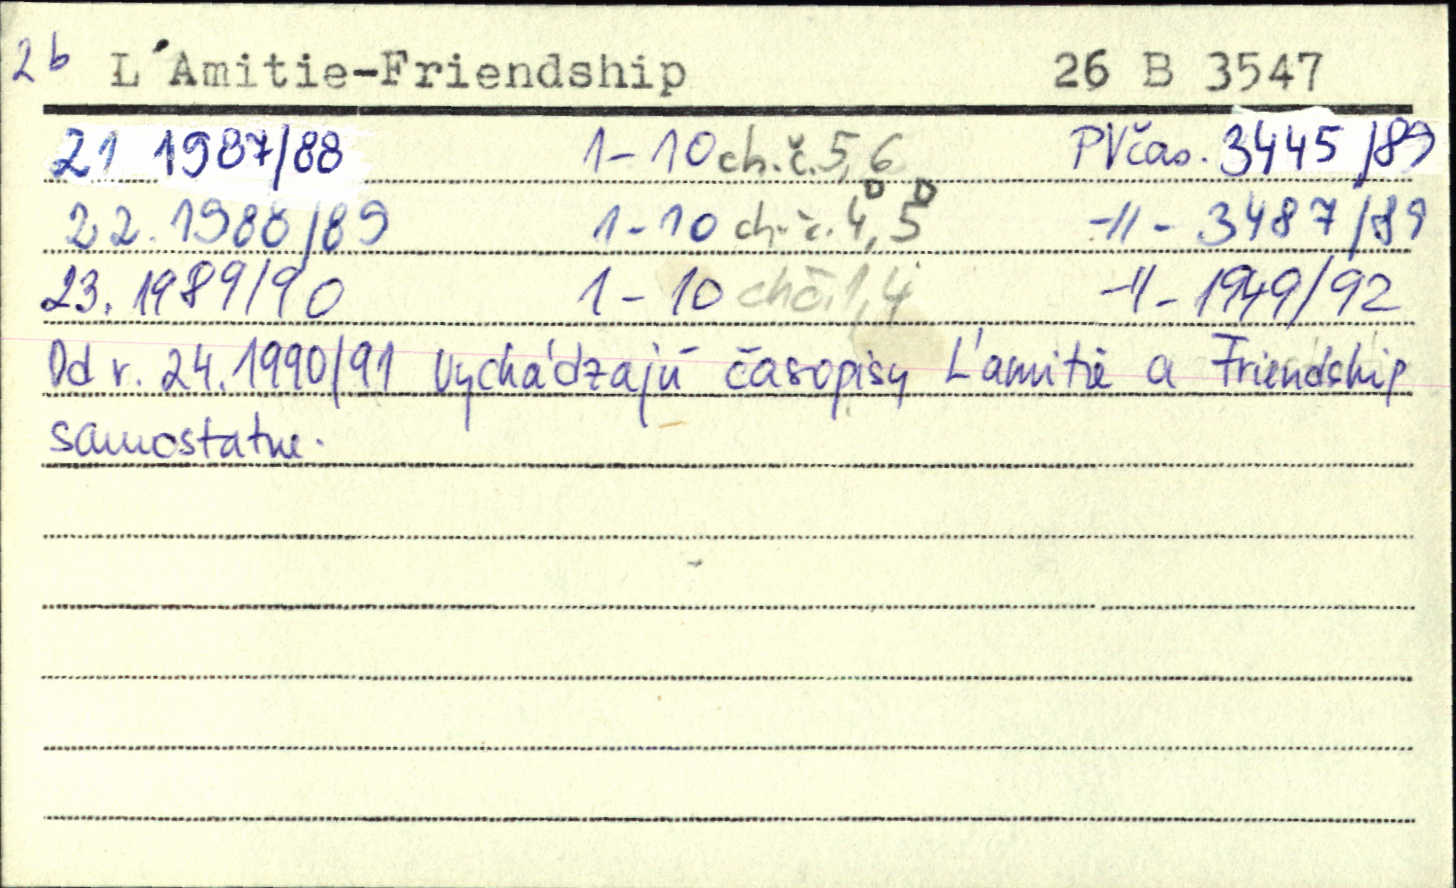 2b L'Amitie-Friendship 26 B 3547
21 1987/88 1-10 ch.č.5,6 PVčas. 3445/89
22. 1988/89 1-10 ch.č.4,5 -11- 3487/89
23. 1989/90 1-10 chč.1,4 -11- 1949/92
Od r. 24.1990/91 vychádzajú časopisy L'amitié a Friendship
samostatne.